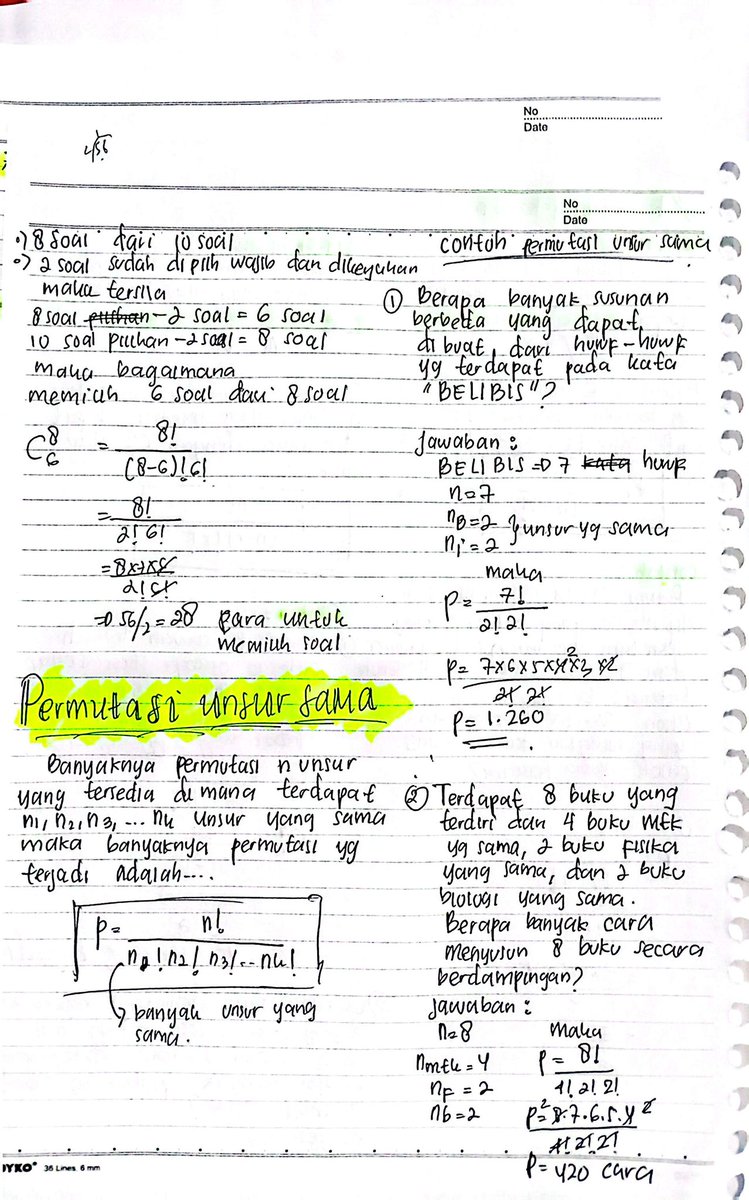 No
Date
456
No
Date
•) 8 soal dari 10 soal
•) 2 soal sudah dipilih wajib dan dikerjakan
maka tersisa
8 soal pilihan - 2 soal = 6 soal
10 soal pilihan - 2 soal = 8 soal
maka bagaimana
memilih 6 soal dari 8 soal
C 8 6 = 8! / (8-6)! 6!
= 8! / 2! 6!
= 8x7x6! / 2! 6!
=> 56/2 = 28 cara untuk
memilih soal
Permutasi unsur sama
Banyaknya permutasi n unsur
yang tersedia di mana terdapat
n1, n2, n3, ... nk unsur yang sama
maka banyaknya permutasi yg
terjadi adalah....
P = n! / n1! n2! n3! ... nk!
banyak unsur yang
sama.
contoh permutasi unsur sama
① Berapa banyak susunan
berbeda yang dapat
dibuat dari huruf-huruf
yg terdapat pada kata
"BELIBIS"?
Jawaban :
BELIBIS => 7 kata huruf
n=7
nB=2 } unsur yg sama
ni=2
maka
P = 7! / 2! 2!
P = 7x6x5x4x3x2 / 2! 2!
P = 1.260
② Terdapat 8 buku yang
terdiri dari 4 buku mtk
yg sama, 2 buku fisika
yang sama, dan 2 buku
biologi yang sama.
Berapa banyak cara
menyusun 8 buku secara
berdampingan?
Jawaban :
n=8 maka
nmtk = 4 P = 8! / 4! 2! 2!
nF = 2
nb = 2 P = 8.7.6.5.4! / 4! 2! 2!
P = 420 cara
36 Lines, 6 mm